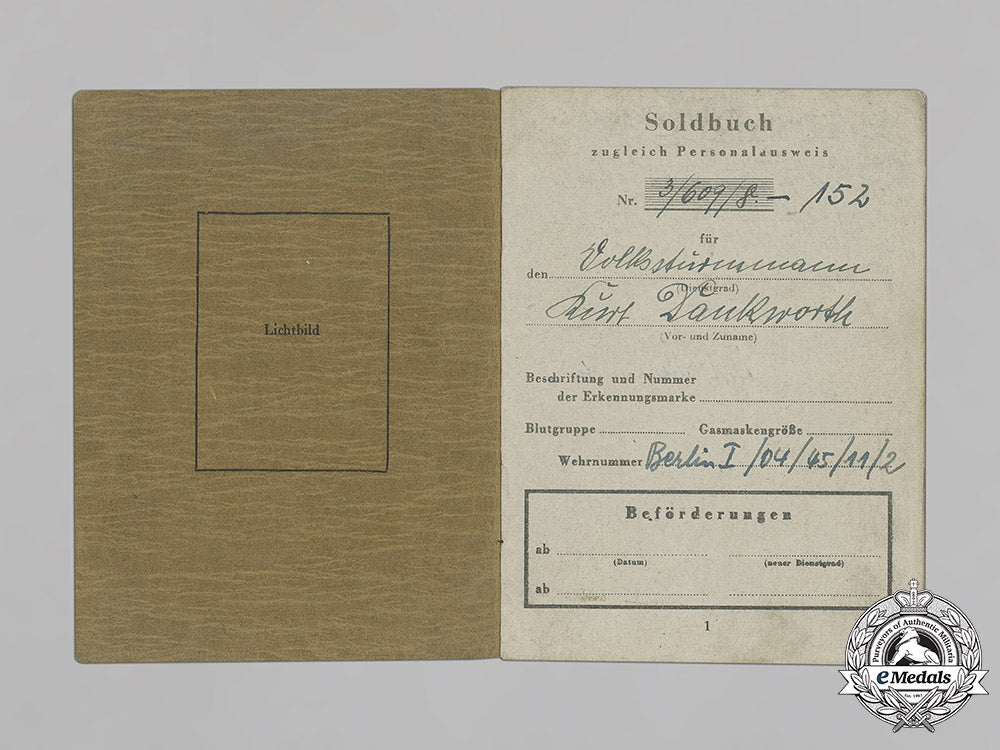 Lichtbild
Soldbuch
zugleich Personalausweis
Nr. 3/609/8 – 152
für
den Volkssturmmann
(Dienstgrad)
Kurt Dankworth
(Vor- und Zuname)
Beschriftung und Nummer
der Erkennungsmarke
Blutgruppe Gasmaskengröße
Wehrnummer Berlin I /04/45/11/2
Beförderungen
ab
(Datum) (neuer Dienstgrad)
ab
1
Purveyors of Authentic Militaria
eMedals